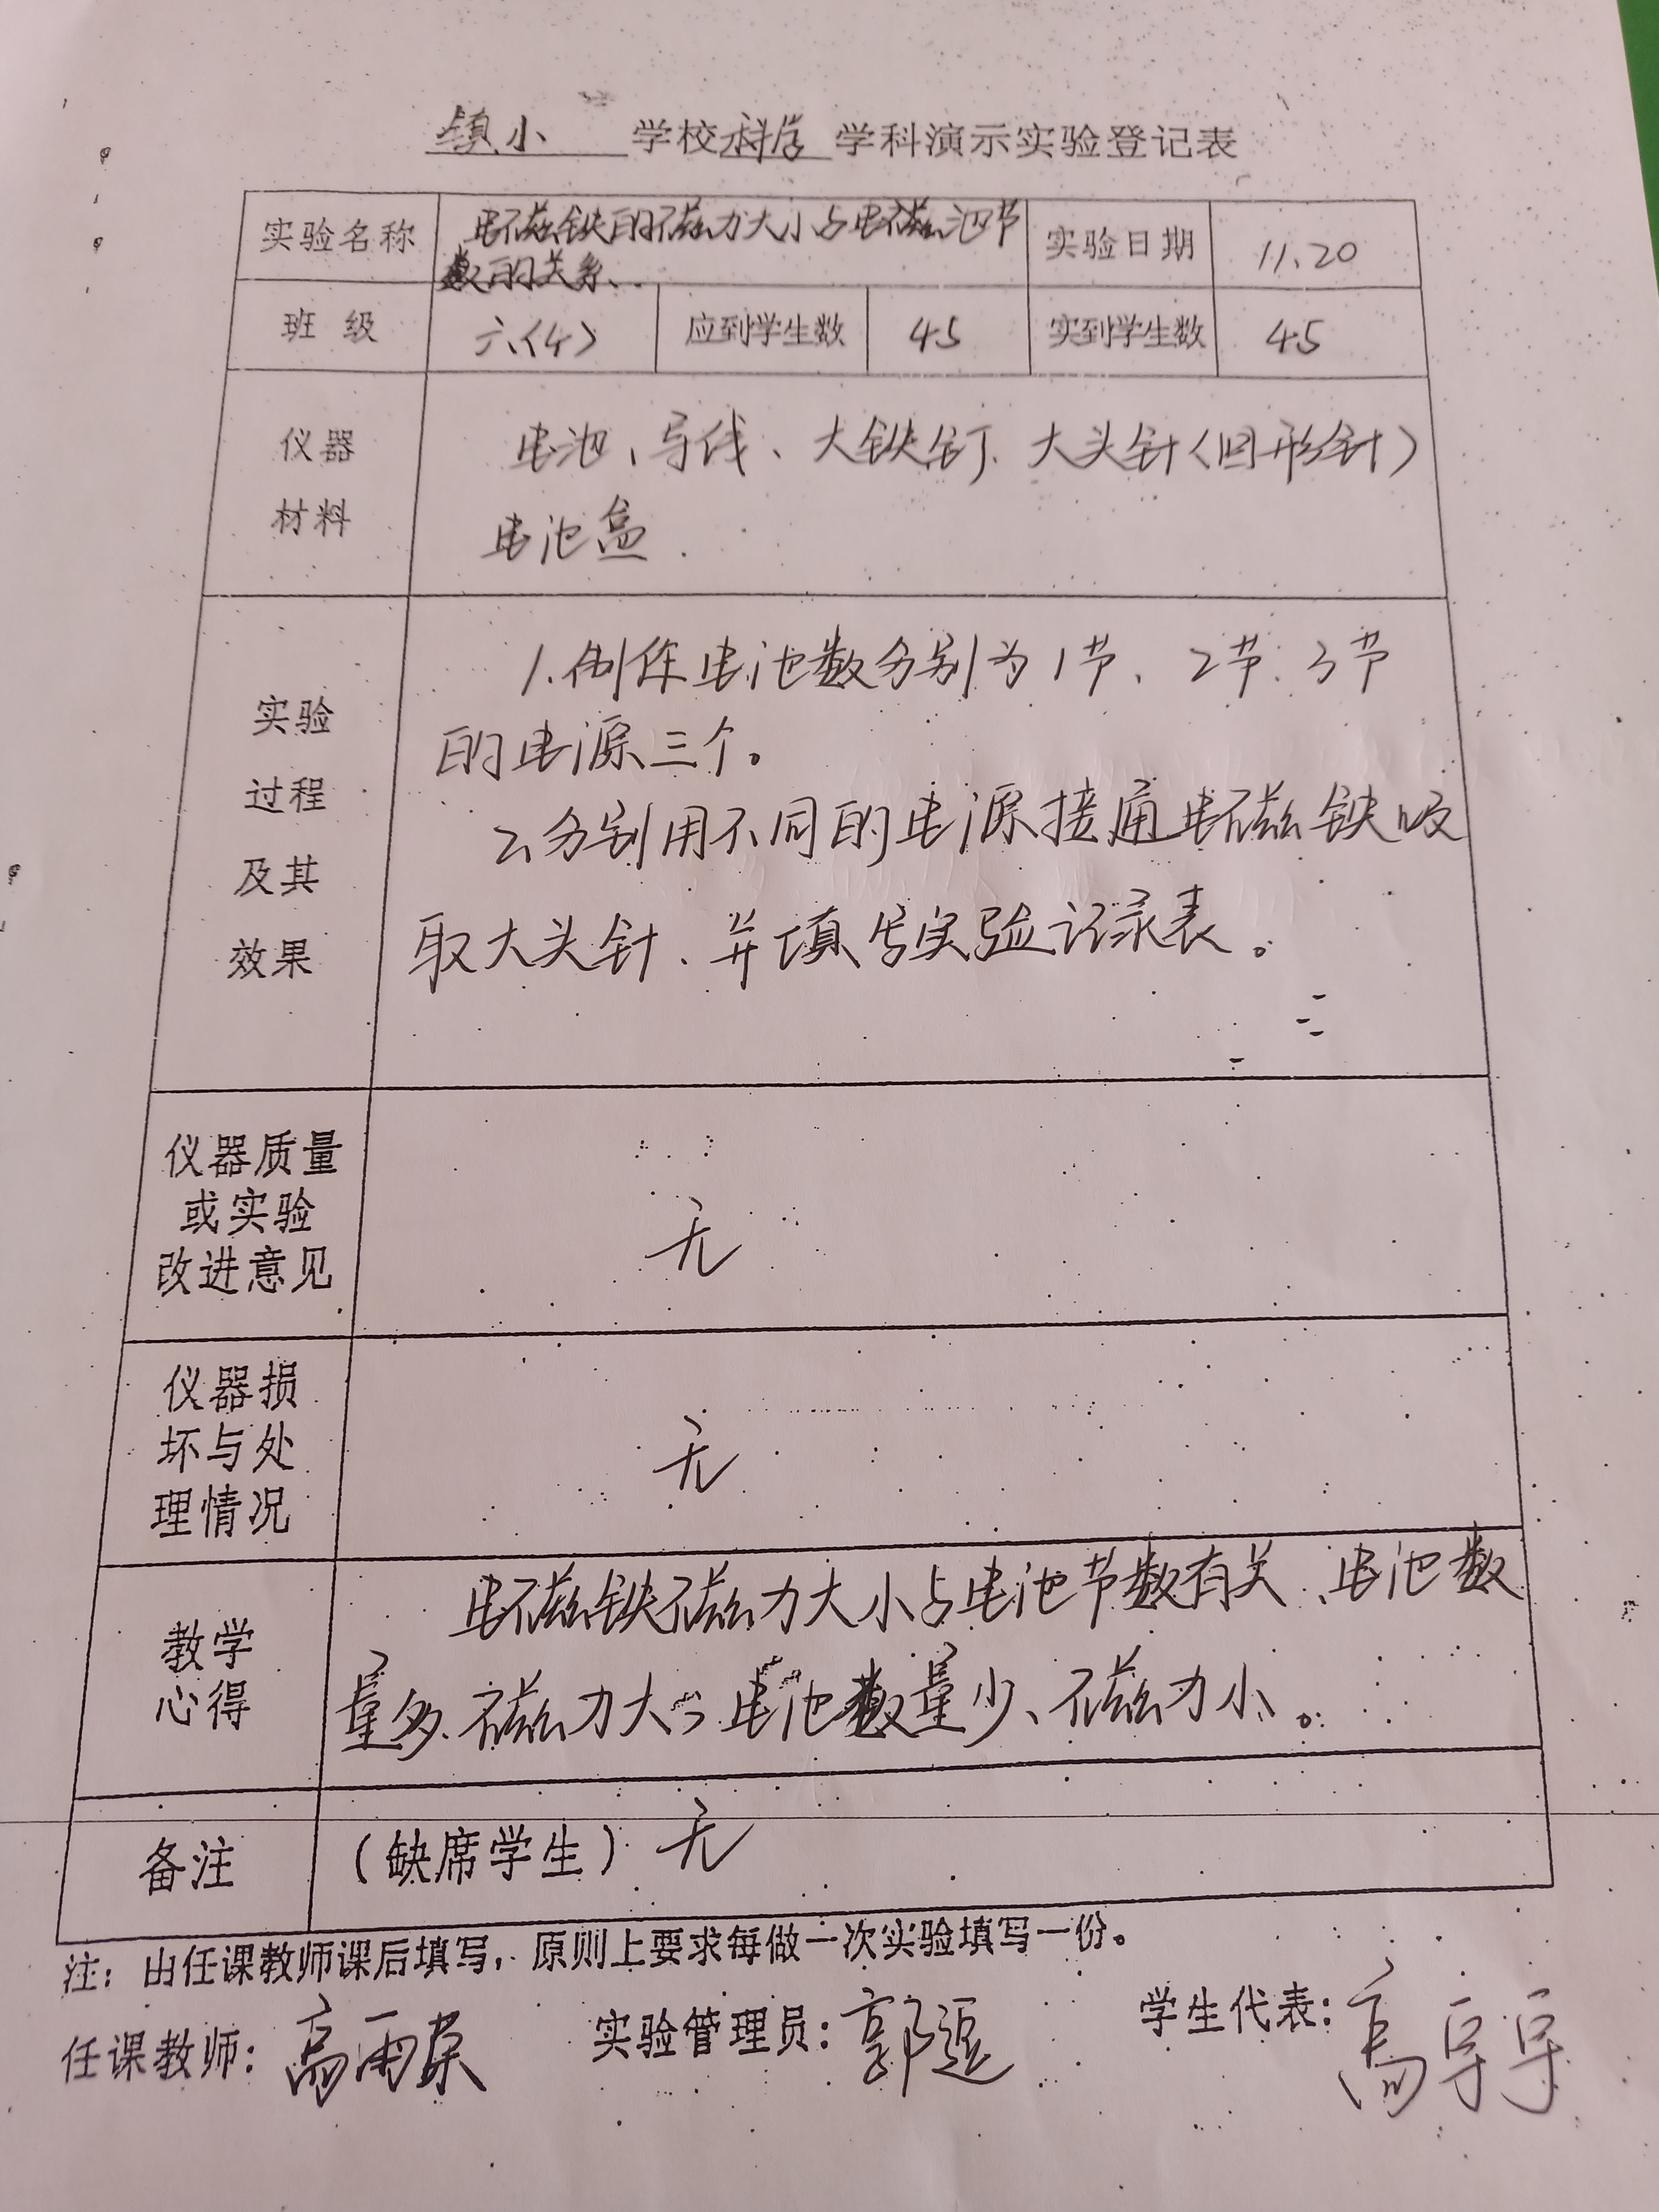 镇小 学校 科学 学科演示实验登记表
实验名称 电磁铁的磁力大小与电磁池节数的关系. 实验日期 11.20
班级 六(4) 应到学生数 45 实到学生数 45
仪器材料
电池、导线、大铁钉、大头针(回形针)
电池盒.
实验过程及其效果
1.制作电池数分别为1节、2节、3节
的电源三个。
2.分别用不同的电源接通电磁铁吸
取大头针、并填写实验记录表。
仪器质量或实验改进意见
无
仪器损坏与处理情况
无
教学心得
电磁铁磁力大小与电池节数有关、电池数
量多、磁力大;电池数量少、磁力小。
备注 (缺席学生) 无
注:由任课教师课后填写,原则上要求每做一次实验填写一份。
任课教师:高雨荣 实验管理员:郭 学生代表:高